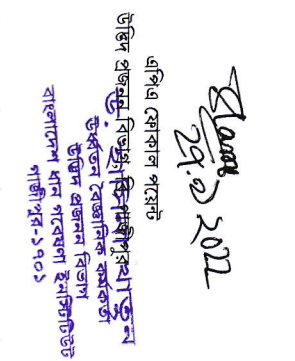 2022
এপিএ ফোকাল পয়েন্ট
উদ্ভিদ প্রজনন বিভাগ, ব্রি, গাজীপুর
ড. খাতুন
ঊর্ধ্বতন বৈজ্ঞানিক কর্মকর্তা
উদ্ভিদ প্রজনন বিভাগ
বাংলাদেশ ধান গবেষণা ইনস্টিটিউট
গাজীপুর-১৭০১